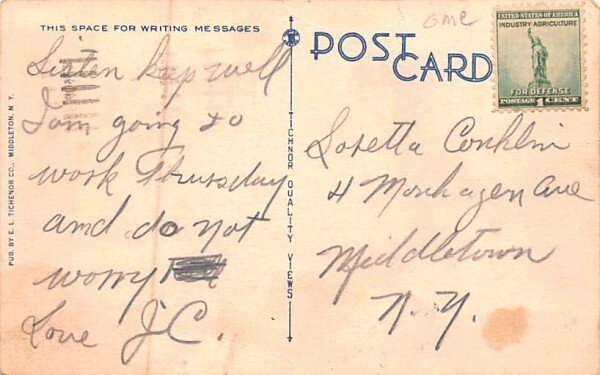 THIS SPACE FOR WRITING MESSAGES
Listen keep well
I am going to
work Thursday
and do not
worry
Love J.C.
PUB. BY E. L. TICHENOR CO., MIDDLETON, N. Y.
TICHNOR QUALITY VIEWS
GME
POST CARD
UNITED STATES OF AMERICA
INDUSTRY-AGRICULTURE
FOR DEFENSE
POSTAGE 1 CENT
Loretta Conklin
4 Monhagen Ave
Middletown
N.Y.